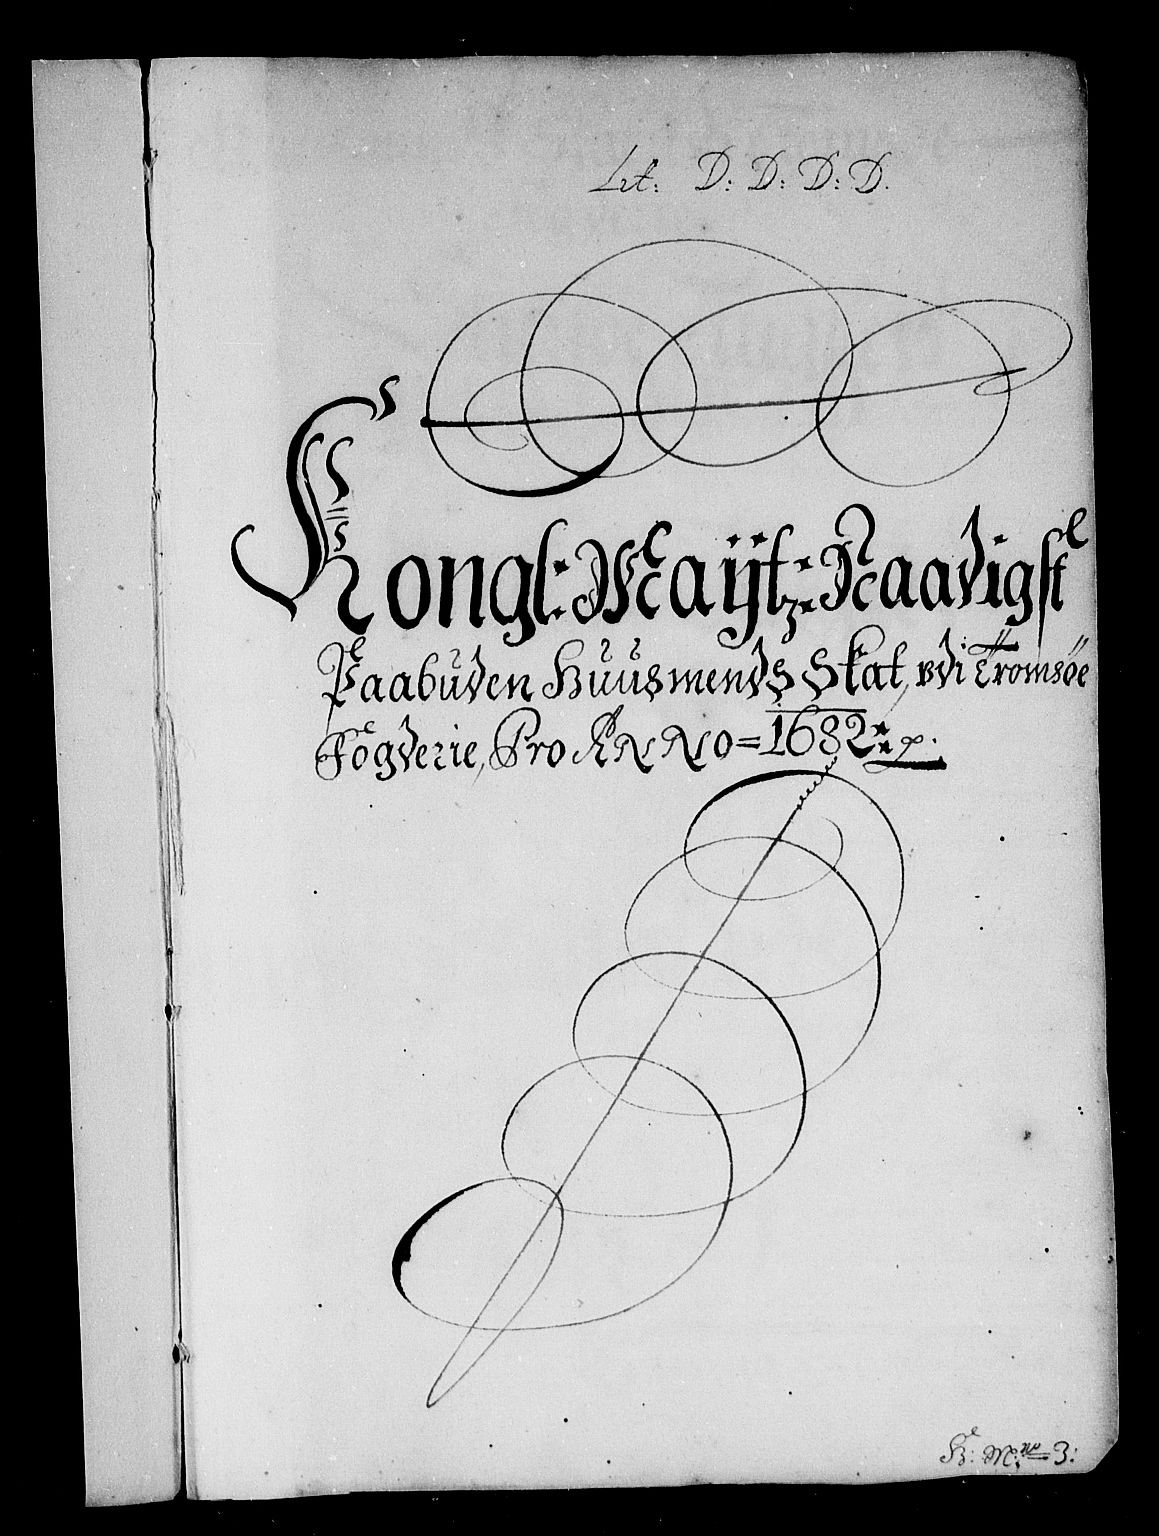 Lit: D: D: D: D.
Kongl: Maÿtz: Naadigst
Paabuden Huusmends Skat, udi Tromsøe
Fogderie, Pro ANNO = 1682:
3: